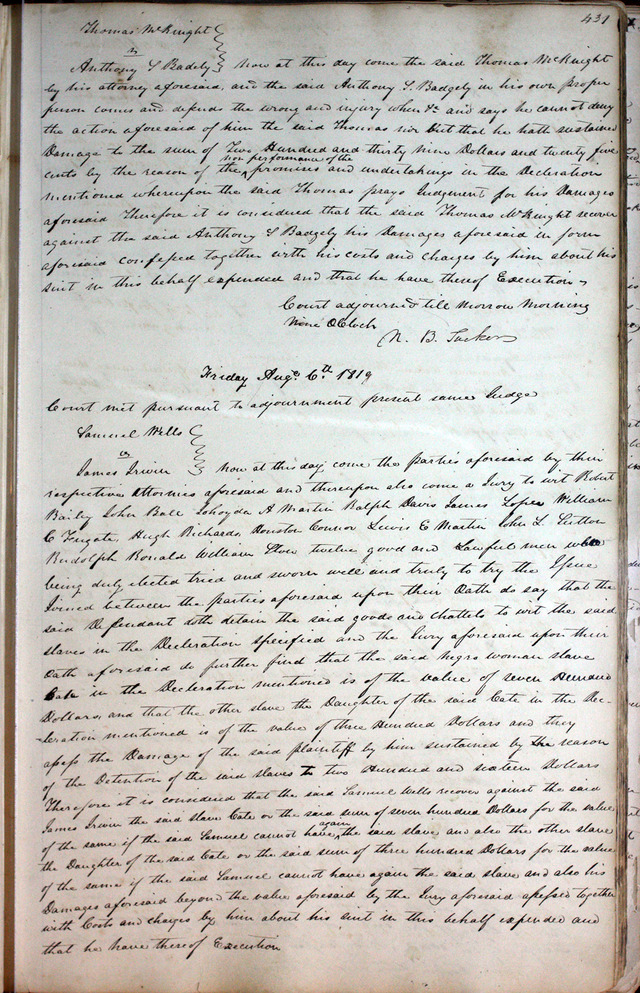 431
Thomas McKnight
vs
Anthony S Badgely Now at this day come the said Thomas McKnight
by his attorney aforesaid, and the said Anthony S. Badgely in his own proper
person comes and defends the wrong and injury when &c and says he cannot deny
the action aforesaid of him the said Thomas nor but that he hath sustained
Damage to the sum of Two Hundred and thirty Nine Dollars and twenty five
cents by the reason of the non performance of the promises and undertakings in the Declaration
mentioned whereupon the said Thomas prays Judgement for his Damages
aforesaid Therefore it is considered that the said Thomas McKnight recover
against the said Anthony S Badgely his Damages aforesaid in form
aforesaid confessed together with his costs and charges by him about his
suit in this behalf expended and that he have thereof Execution
Court adjourned till Morrow Morning
Nine OClock
N. B. Tucker
Friday Augt 6th 1819
Court met pursuant to adjournment present same Judge
Samuel Wells
vs
James Irwin Now at this day come the Parties aforesaid by their
respective Attornies aforesaid and thereupon also come a Jury to wit Robert
Bailey John Ball A Martin Ralph Davis James Lopez William
C Hugh Richards, Connor Lewis E Martin John L Sutton
Rudolph Ronald William Stow twelve good and Lawful men who
being duly elected tried and sworn well and truly to try the Issue
Joined between the parties aforesaid upon their Oath do say that the
said Defendant doth detain the said goods and chattels to wit the said
slaves in the Declaration specified and the Jury aforesaid upon their
Oath aforesaid do further find that the said Negro woman slave
Cate in the Declaration mentioned is of the value of seven Hundred
Dollars, and that the other slave the Daughter of the said Cate in the Dec-
leration mentioned is of the value of three Hundred Dollars and they
assess the Damage of the said plaintiff by him sustained by the reason
of the Detention of the said slaves to two Hundred and sixteen Dollars
Therefore it is considered that the said Samuel Wells recover against the said
James Irwin the said slave Cate or the said sum of seven hundred Dollars for the value
of the same if the said Samuel cannot have again the said slave and also the other slave
the Daughter of the said Cate or the said sum of three hundred Dollars for the value
of the same if the said Samuel cannot have again the said slave and also his
Damages aforesaid beyond the value aforesaid by the Jury aforesaid assessed together
with Costs and charges by him about his suit in this behalf expended and
that he have thereof Execution